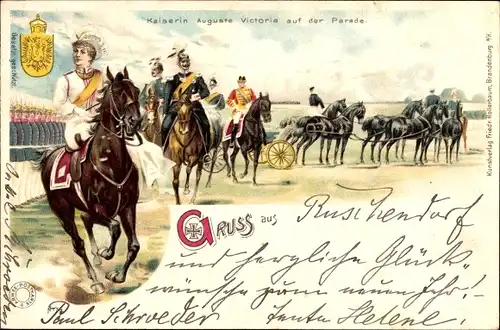 Kaiserin Auguste Victoria auf der Parade.
Gesetzl. geschützt.
Kunstverlag Fried. Rotenbaum, Brandenburg a/H.
GRUSS aus Ruschendorf
und herzliche Glück
wünsche zum neuen Jahr!
Paul Schroeder Tante Helene!